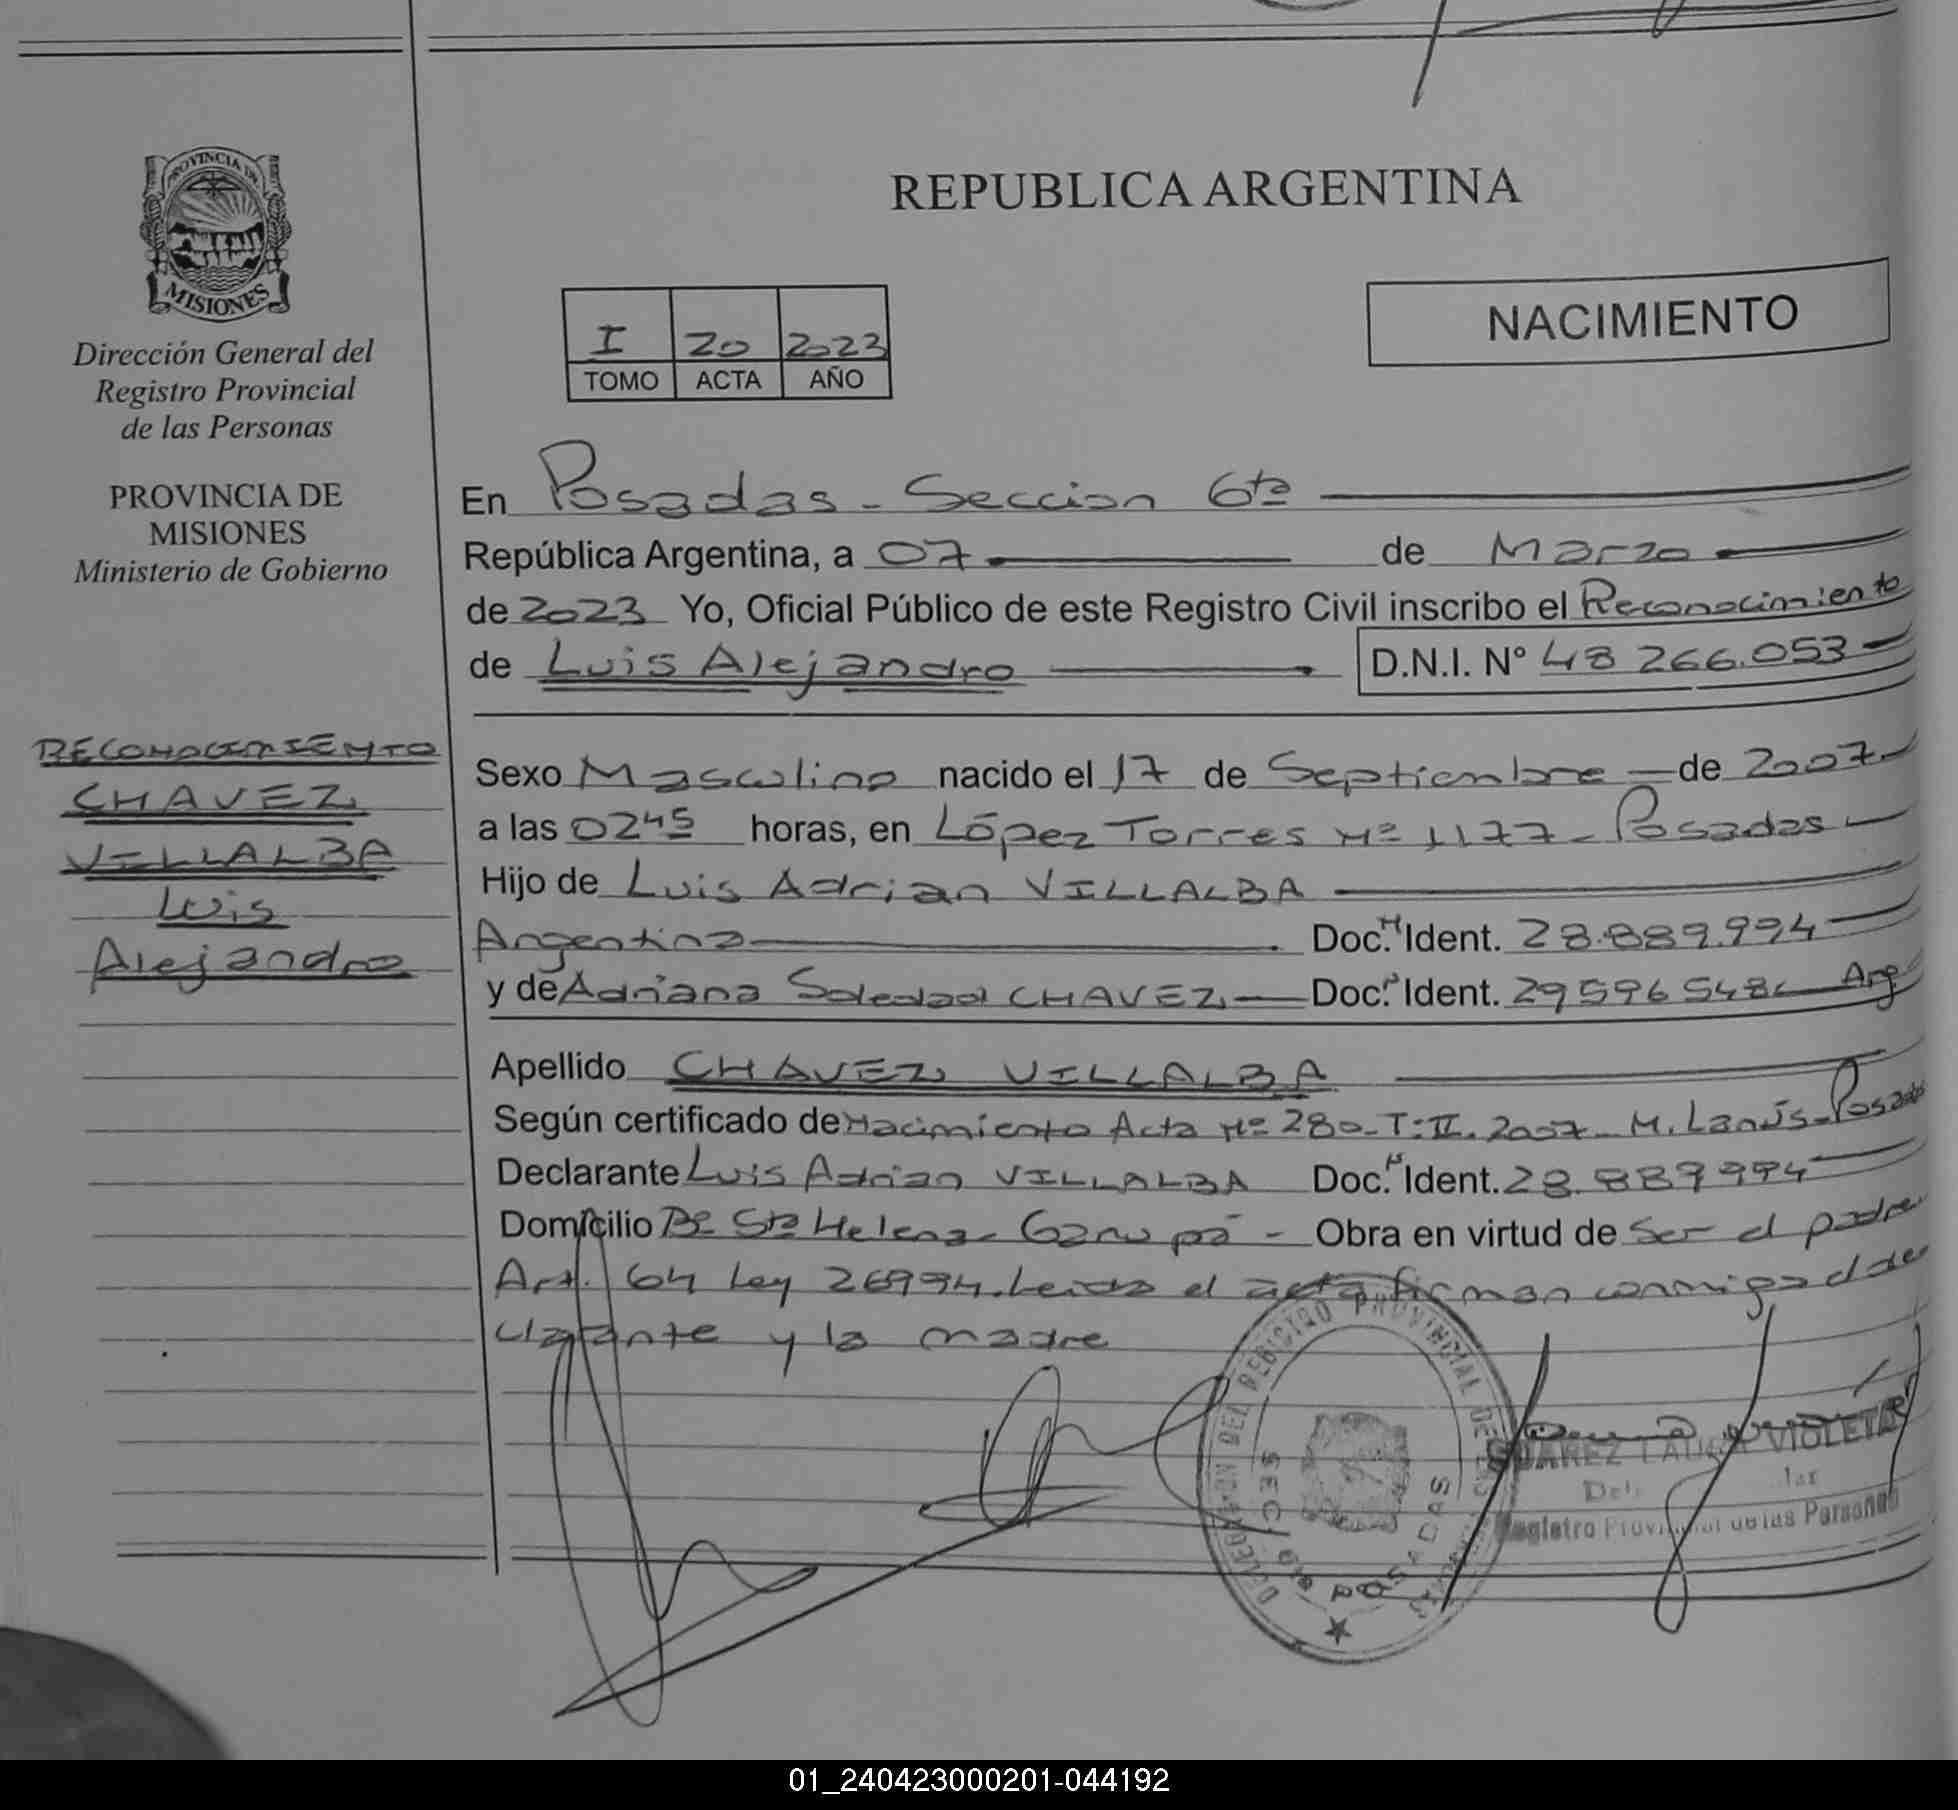 PROVINCIA DE
MISIONES
Dirección General del
Registro Provincial
de las Personas
PROVINCIA DE
MISIONES
Ministerio de Gobierno
RECONOCIMIENTO
CHAVEZ
VILLALBA
Luis
Alejandro
REPUBLICA ARGENTINA
I 20 2023
TOMO ACTA AÑO
NACIMIENTO
En Posadas - Seccion 6ta
República Argentina, a 07 de Marzo
de 2023 Yo, Oficial Público de este Registro Civil inscribo el Reconocimiento
de Luis Alejandro D.N.I. N° 48 266.053
Sexo Masculino nacido el 17 de Septiembre de 2007
a las 0245 horas, en López Torres Nº 1177 - Posadas
Hijo de Luis Adrian VILLALBA
Argentina Doc. N Ident. 28.889.994
y de Adriana Soledad CHAVEZ Doc. N Ident. 29596548 Arg
Apellido CHAVEZ VILLALBA
Según certificado de Nacimiento Acta Nº 280 - T: II. 2007 - M. Lanús - Posadas
Declarante Luis Adrian VILLALBA Doc. N Ident. 28.889994
Domicilio Bº Sta Helena - Garupá - Obra en virtud de Ser el padre
Art. 64 Ley 26994. Leida el acta firman conmigo el de
clarante y la madre
DELEGACION DEL REGISTRO PROVINCIAL DE LAS
SEC. 6ta POSADAS
SUAREZ LAURA VIOLETA
Registro Provincial de las Personas
01_240423000201-044192